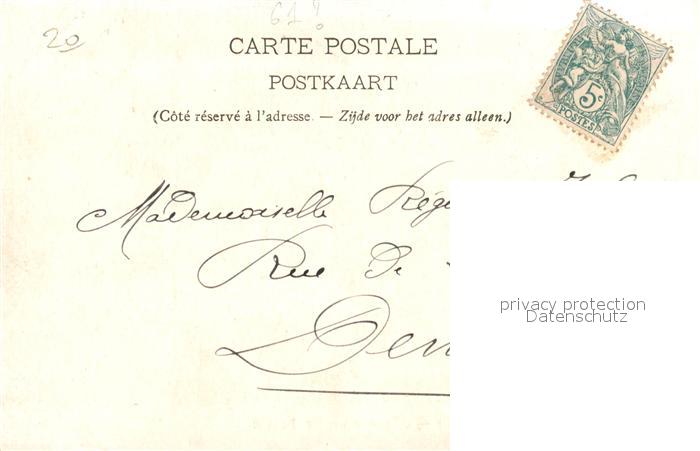 61
20
CARTE POSTALE
POSTKAART
(Côté réservé à l'adresse. — Zijde voor het adres alleen.)
5c
POSTES
Mademoiselle
Rue De
privacy protection
Datenschutz